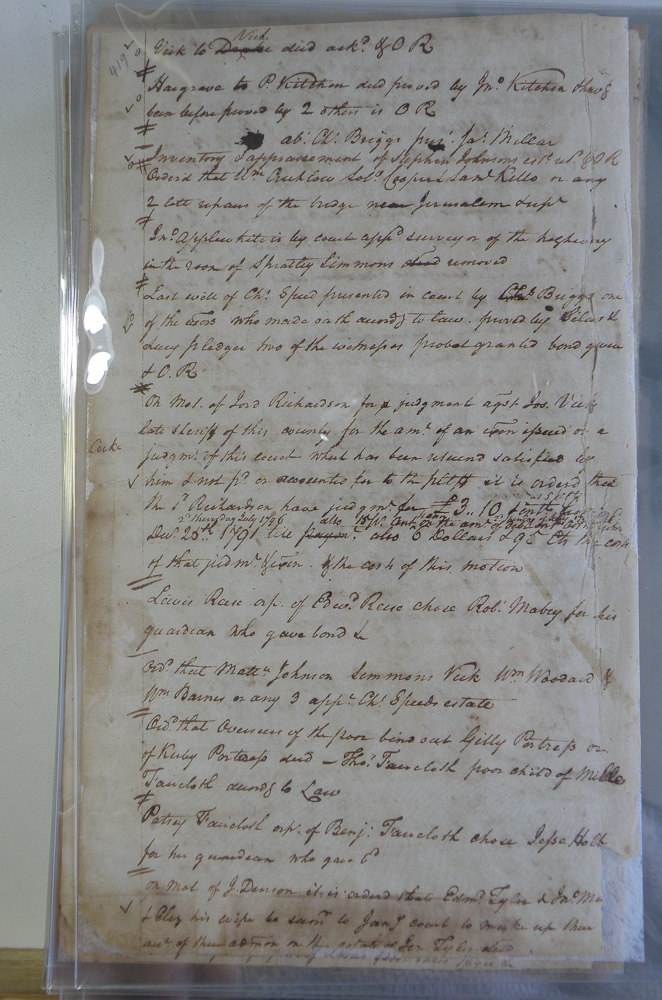 419
Vick
Vick to Drake deed ackd & O R
Hargrave to P. Kitchen deed proved by Jno Kitchen having
been before proved by 2 others is O R
abt. Chs. Briggs prest. Jas. Millar
Inventory & appraisement of Stephen Johnsons est. ret. & O R
Orderd that Wm Crichlow Sol. Cooper & Saml Kello or any
2 lett repairs of the bridge near Jerusalem &
Jno. Applewhite is by court appd surveyor of the highway
in the room of Spratley Simmons dead removed
Last will of Chs. Speed presented in court by Chs. Briggs one
of the exors who made oath accordg to law. proved by Silas &
Lucy pledger two of the witnesses probat granted bond given
& O. R
On Mot. of Jord Richardson for a judgment agst Jos. Vick
late Sheriff of this county for the amt. of an exon issued on a
Cocke
judgmt. of this court which has been returnd satisfied by
him & not pd. or accounted for to the pltff it is orderd that
the sd. Richardson have judgmt for £3..10
2d thursday July 1796 also 15 Pr. Cent on the amt of
Decr. 25th. 1791 till paymt. also 6 Dollars & 95 Cts the costs
of that judmt. & exon. & the costs of this motion
Lewis Reese orp. of Edwd. Reese chose Robt. Mabry for his
guardian who gave bond &
Ord. that Mattw Johnson Simmons Vick Wm Woodard &
Wm Barnes or any 3 appr. Chs. Speeds estate
Ord. that Overseers of the poor bind out Gilly Portress or
of Kirby Portress decd — Thos. Faircloth poor child of Mille
Faircloth accordg to Law
Patsey Faircloth orp. of Benj. Faircloth chose Jesse Holt
for her guardian who gave bd
on Mot of J. Denson it is orderd that Edmd. Tyler & Jno. Mo
& Eliz his wife be sumd to Jany court to make up their
acct of their admon on the estate of Jer. Tyler decd